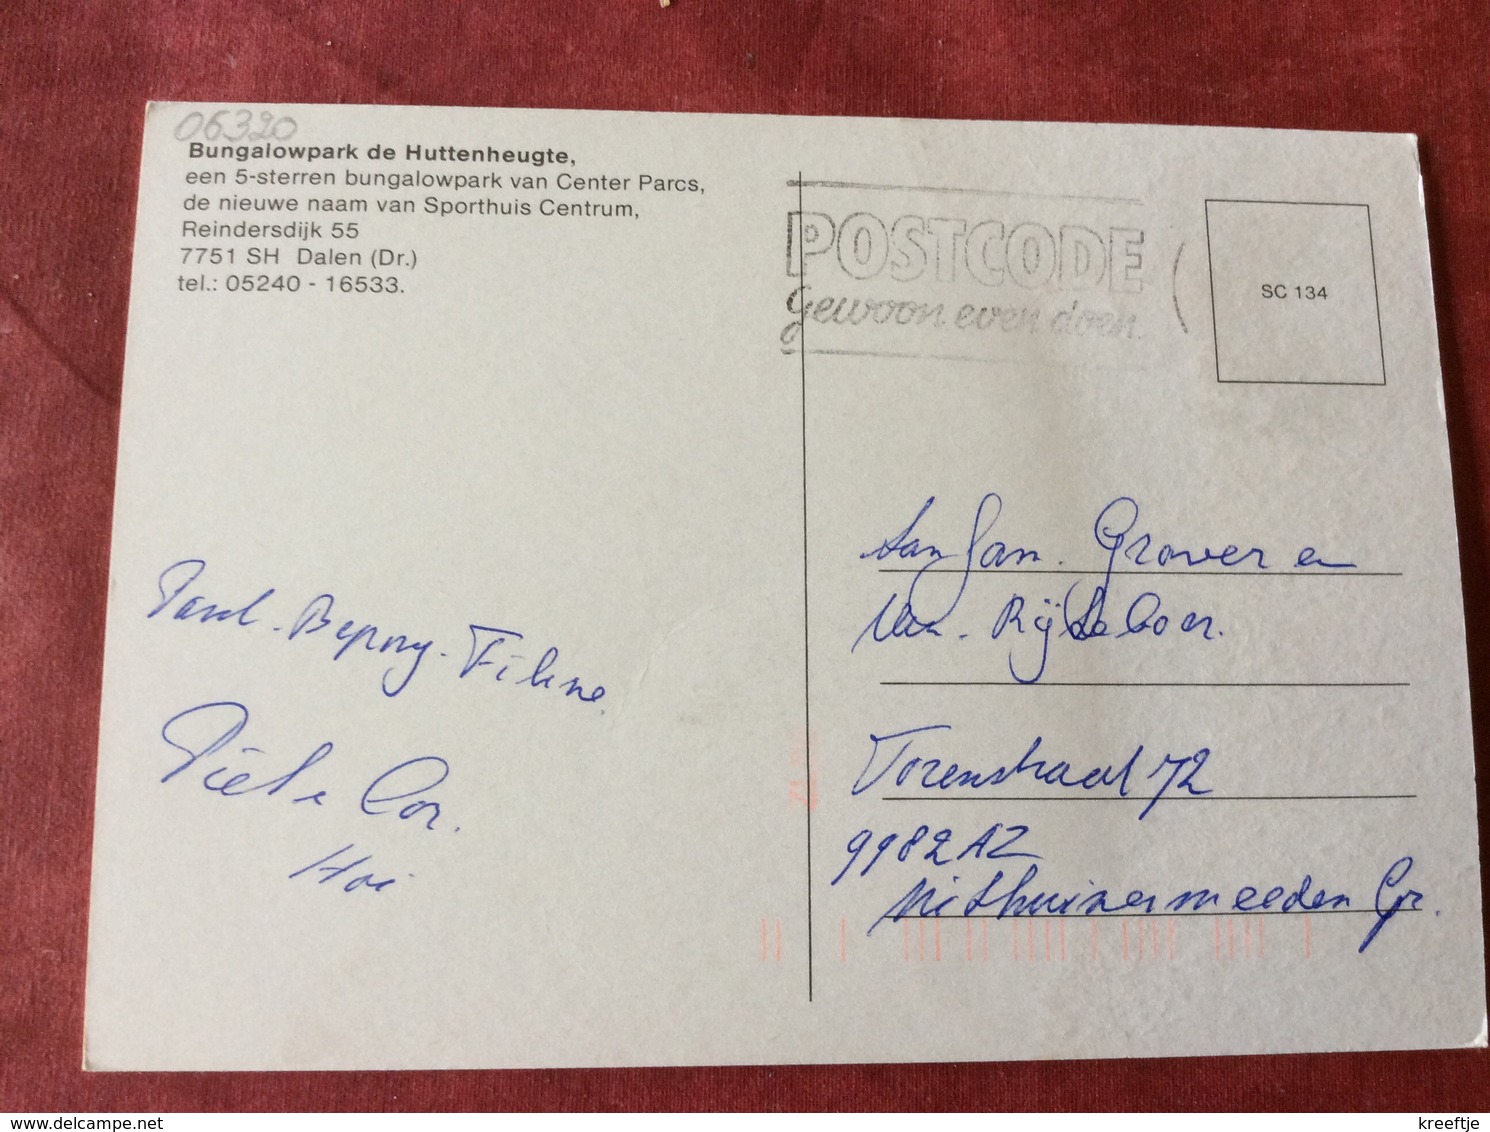 06320
Bungalowpark de Huttenheugte,
een 5-sterren bungalowpark van Center Parcs,
de nieuwe naam van Sporthuis Centrum,
Reindersdijk 55
7751 SH Dalen (Dr.)
tel.: 05240 - 16533.
POSTCODE
gewoon even doen.
SC 134
Aan Jan. Grover en
Rijkeboer.
Torenstraat 72
9982 AZ
Uithuizermeeden Gr.
Piet Cor.
Hoi
© Delcampe.net
kreeftje